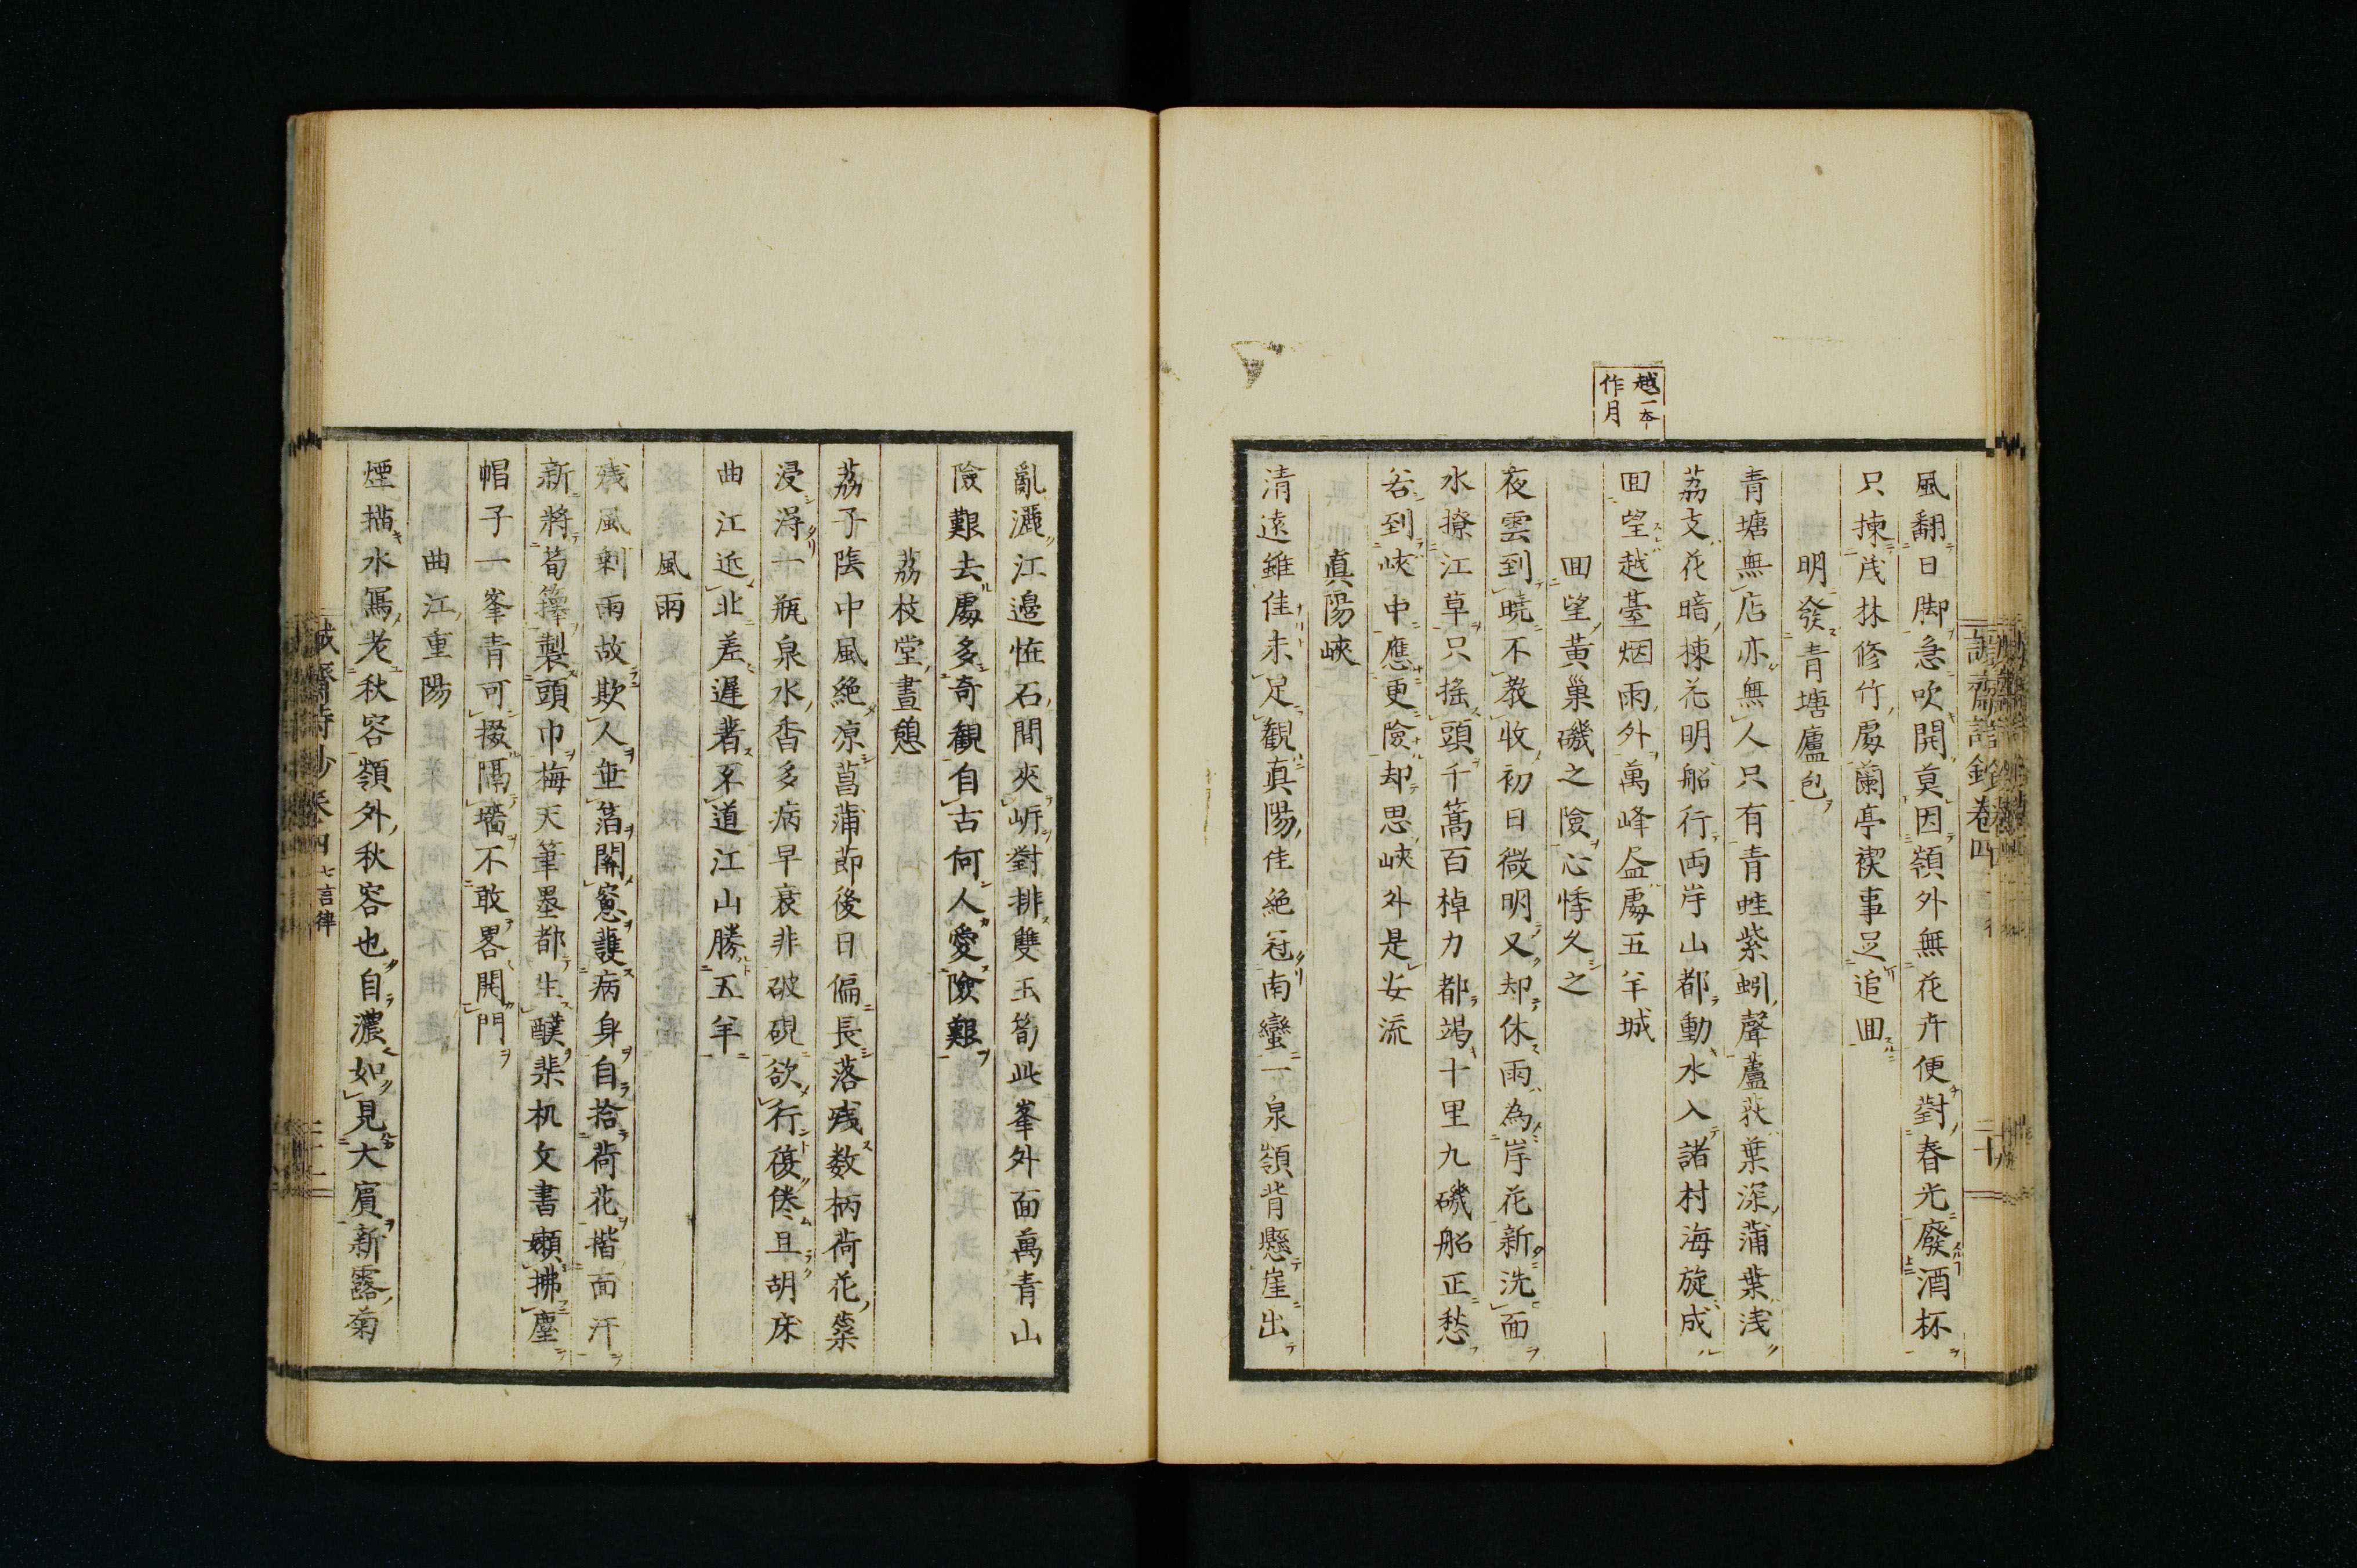 越一本
作月
風翻日脚急吹開莫因嶺外無花卉便對春光廢酒杯
只揀茂林修竹處蘭亭禊事足追回
明發青塘廬包
青塘無店亦無人只有青蛙紫蚓聲蘆荻葉深蒲葉浅
荔支花暗楝花明船行両岸山都動水入諸村海旋成
回望越䑓烟雨外萬峰盡處五羊城
回望黃巢磯之險心悸久之
夜雲到曉不教收初日微明又却休雨為岸花新洗面
水撩江草只搖頭千篙百棹力都竭十里九磯船正愁
若到峽中應更險却思峽外是安流
真陽峽
清遠雖佳未足觀真陽佳絶冠南蠻一泉嶺背懸崖出
亂灑江邊恠石間夾岍對排雙玉筍此峯外面萬青山
險艱去處多奇観自古何人愛險艱
荔枝堂晝憩
荔子陰中風絶凉菖蒲莭後日偏長落残数柄荷花蘂
浸得一瓶泉水香多病早衰非破硯欲行復倦且胡床
曲江近北差遅着不道江山勝五羊
風雨
残風剰雨故欺人垂箔関窓護病身自拾荷花揩面汗
新將荀籜製頭巾梅天筆墨都生醭棐机文書嬾拂塵
帽子一峯青可掇隔墻不敢畧開門
曲江重陽
煙描水寫老秋容嶺外秋容也自濃如見大賓新露菊
誠齋詩鈔卷四
七言律
二十一